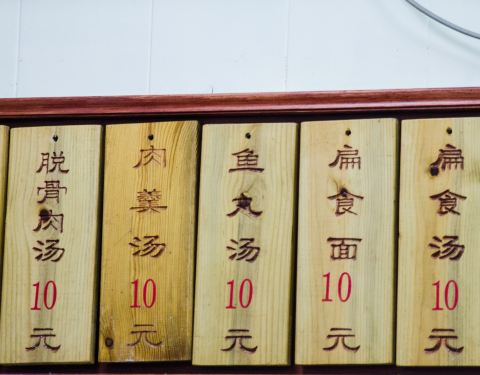 脱骨肉汤10元
肉羹汤10元
鱼丸汤10元
扁食面10元
扁食汤10元